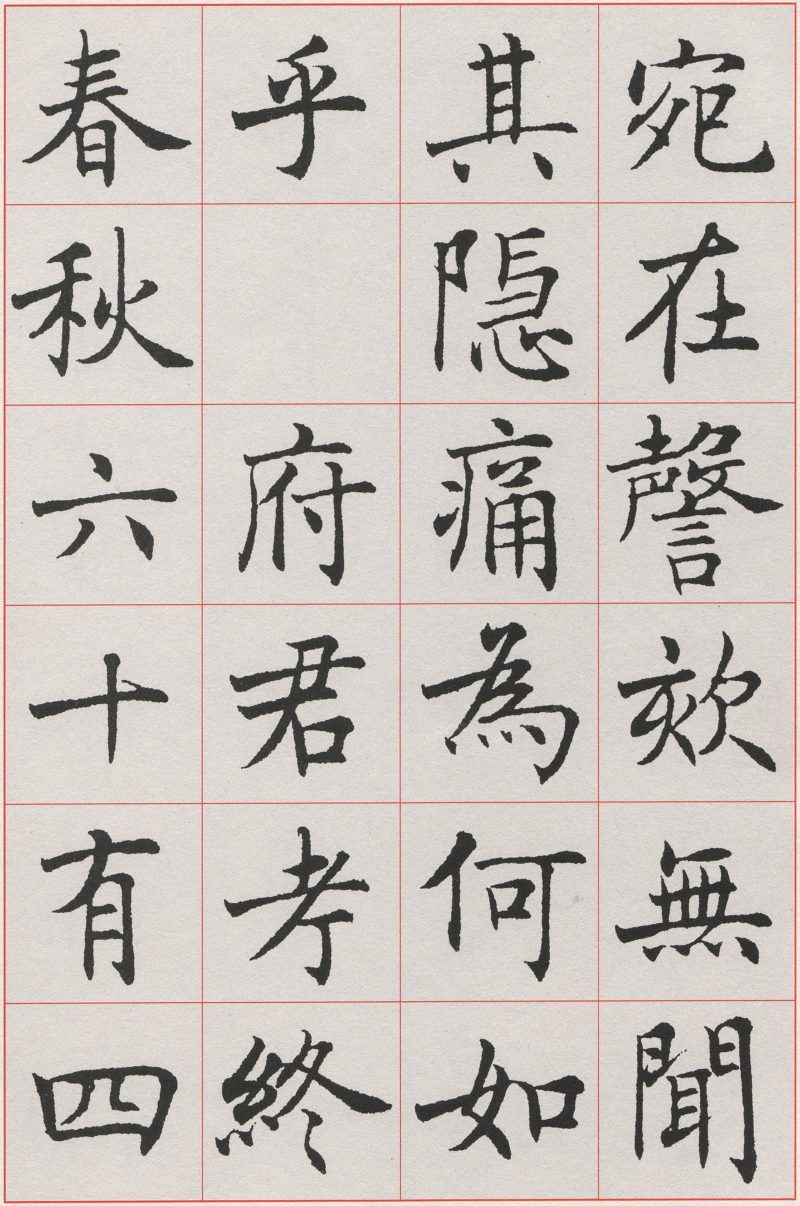 宛在謦欬無聞
其隱痛為何如
乎　府君考終
春秋六十有四